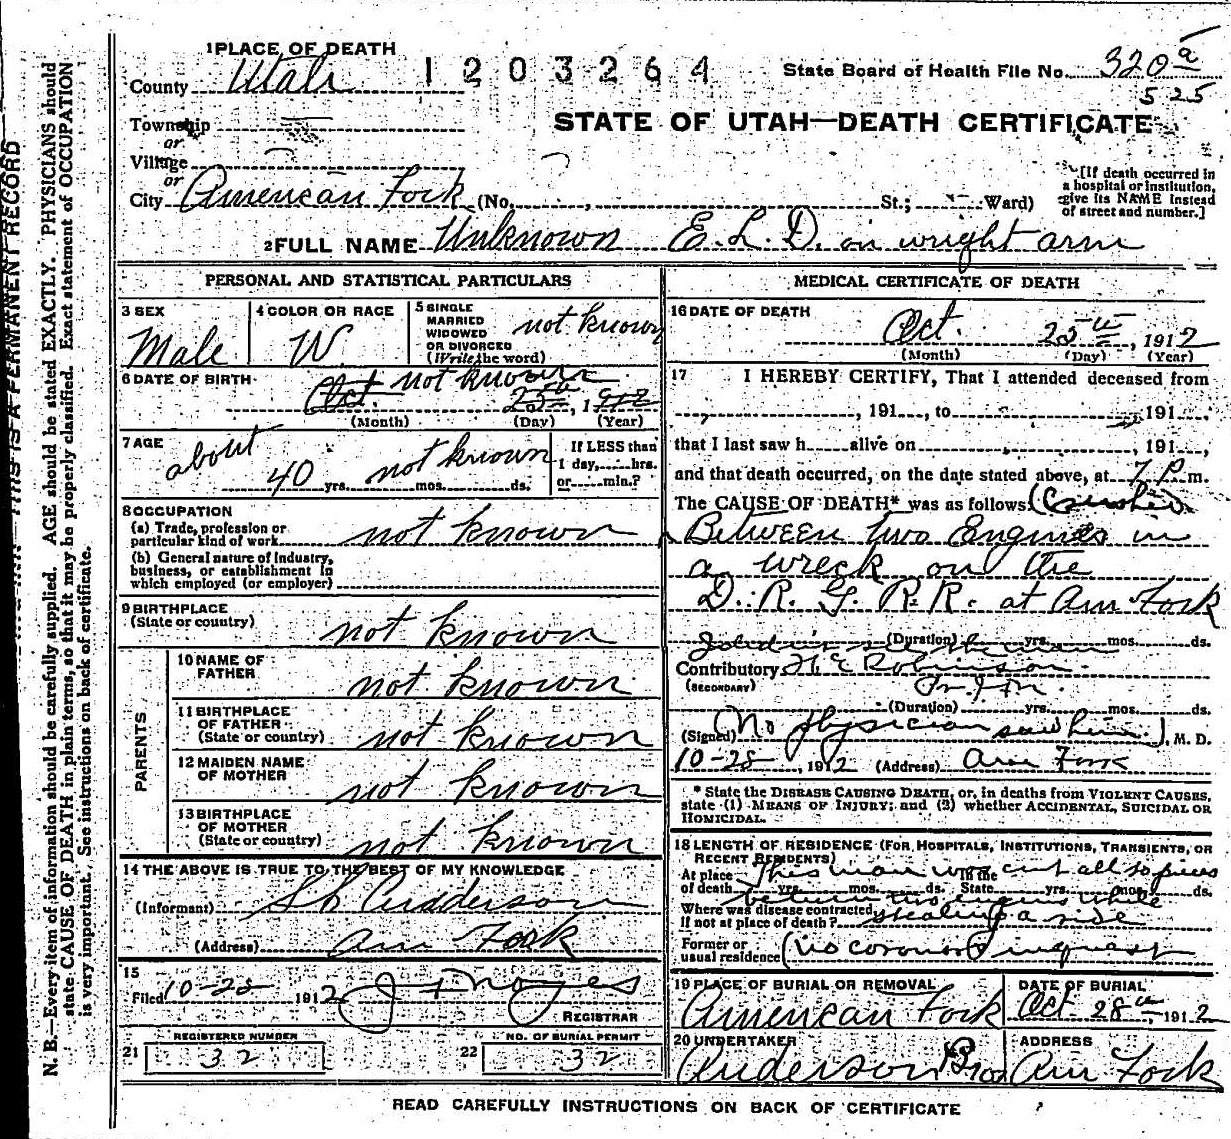 1 PLACE OF DEATH
County Utah
1203264
State Board of Health File No. 320 a
5 25
Township
or
Village
or
City American Fork (No. , St.; Ward)
STATE OF UTAH—DEATH CERTIFICATE
[If death occurred in
a hospital or institution,
give its NAME instead
of street and number.]
2 FULL NAME Unknown E. L. D. on wright arm
PERSONAL AND STATISTICAL PARTICULARS
3 SEX
Male
4 COLOR OR RACE
W.
5 SINGLE
MARRIED
WIDOWED
OR DIVORCED
(Write the word)
not known
6 DATE OF BIRTH
not known
Oct. 25th, 1912
(Month) (Day) (Year)
7 AGE
about 40 yrs. not known mos. ds.
If LESS than
1 day, hrs.
or min.?
8 OCCUPATION
(a) Trade, profession or
particular kind of work not known
(b) General nature of industry,
business, or establishment in
which employed (or employer)
9 BIRTHPLACE
(State or country) not known
PARENTS
10 NAME OF
FATHER not known
11 BIRTHPLACE
OF FATHER
(State or country) not known
12 MAIDEN NAME
OF MOTHER not known
13 BIRTHPLACE
OF MOTHER
(State or country) not known
14 THE ABOVE IS TRUE TO THE BEST OF MY KNOWLEDGE
(Informant)
(Address) Am Fork
15
Filed 10-28 1912
REGISTRAR
REGISTERED NUMBER
21 32
NO. OF BURIAL PERMIT
22 32
MEDICAL CERTIFICATE OF DEATH
16 DATE OF DEATH
Oct. 25th, 1912
(Month) (Day) (Year)
17 I HEREBY CERTIFY, That I attended deceased from
, 191 , to 191 ,
that I last saw h alive on , 191 ,
and that death occurred, on the date stated above, at 7 P. m.
The CAUSE OF DEATH* was as follows: (Crushed
Between two Engines in
a wreck on the
D. R. G. R.R. at Am Fork
(Duration) yrs. mos. ds.
Contributory H E Robinson
(SECONDARY)
(Duration) yrs. mos. ds.
(Signed) (No physician saw him.) M. D.
10-28, 1912 (Address) Am Fork
* State the DISEASE CAUSING DEATH, or, in deaths from VIOLENT CAUSES,
state (1) MEANS OF INJURY; and (2) whether ACCIDENTAL, SUICIDAL OR
HOMICIDAL.
18 LENGTH OF RESIDENCE (FOR HOSPITALS, INSTITUTIONS, TRANSIENTS, OR
RECENT RESIDENTS)
This man was cut all to pieces
At place In the
of death yrs. mos. ds. State yrs. mos. ds.
between two engines while
Where was disease contracted
If not at place of death? stealing a ride
Former or
usual residence (no coroner inquest
19 PLACE OF BURIAL OR REMOVAL
American Fork
DATE OF BURIAL
Oct 28th, 1912
20 UNDERTAKER
Anderson Bros
ADDRESS
Am Fork
READ CAREFULLY INSTRUCTIONS ON BACK OF CERTIFICATE
THIS IS A PERMANENT RECORD
N. B.—Every item of information should be carefully supplied. AGE should be stated EXACTLY. PHYSICIANS should
state CAUSE OF DEATH in plain terms, so that it may be properly classified. Exact statement of OCCUPATION
is very important. See instructions on back of certificate.